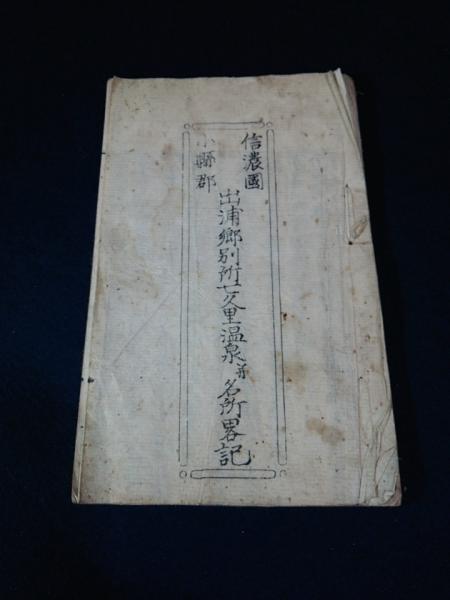 信濃國
小縣郡
出浦郷別所七久里温泉并名所畧記